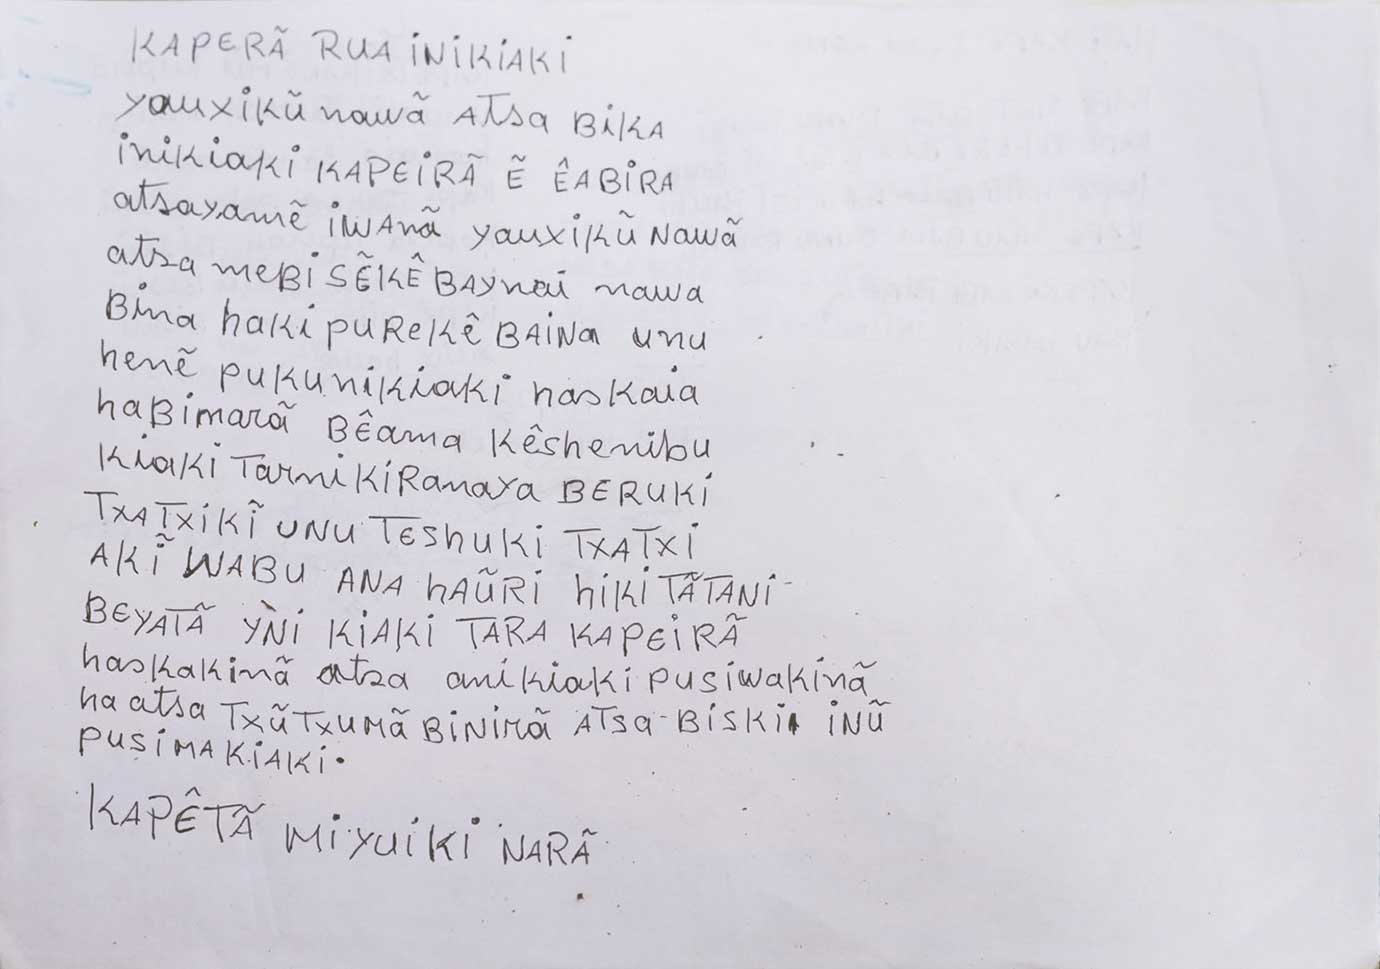 KAPERÃ RUA iNiKiAKi
yauxikũ nawã ATSA BiKA
iNiKiaKi KAPEiRÃ Ẽ ÊABiRA
atsayamẽ iWAnã yauxikũ NaWã
atsa meBi SẼKÊ BAYnai nawa
Bina haKi puReKê BAiNa unu
henẽ puKuniKiaKi haskaia
haBimarã BÊama Kêshenibu
KiaKi TarniKiRanaya BERUKi
TXATXiKĨ UNU TESHUKi TXATXi
AKĨ WABU ANA hAŨRi hiKi TÃTANi
BEYATÃ YNi KiAKi TARA KAPEiRÃ
haskakinã atsa aniKiaKi pusiwaKinã
ha atsa TXŨTXUMÃ BiNiRã ATSa-BiSKi iNŨ
PUSiMAKiAKi.
KAPÊTÃ MiYUiKi NARÃ